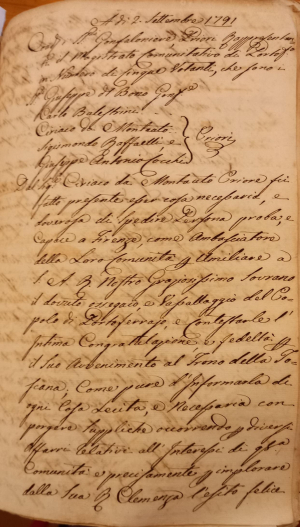 A dì 2. Settembre 1791
Gonfaloniere e Priori Rappresentan
Il Magistrato Comunitativo di Portofer
in Num:o di cinque Votanti, che sono:
Giuseppe M.
Carlo Balestrini
Ciriaco da Monteuto
Sigismondo Raffaelli, e } Priori
Giuseppe Antonio
Dal Sig. Ciriaco da Monteuto Priore fu
fatto presente esser cosa necessaria, e
doverosa di spedire Persona proba, e
capace a Firenze come Ambasciatore
della Loro Comunità p. Umiliare a
S. A. R. Nostro Graziosissimo Sovrano
il dovuto ossequio e Vassallaggio del Po-
polo di Portoferraio, e Contestarle l'
intima Congratulazione, e fedeltà p.
il suo Avvenimento al Trono della To-
scana, Come pure d'Informarla di
ogni Cosa Lecita, e Necessaria con
porgere Suppliche occorrendo p. diversi
affari relativi all'Interessi di q.sta
Comunità e precisamente p. implorare
dalla Sua R. Clemenza l'esito felice